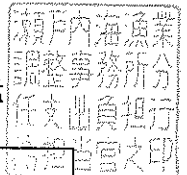 瀬戸内海漁業
調整事務所分
任支出負担行
為担当官之印